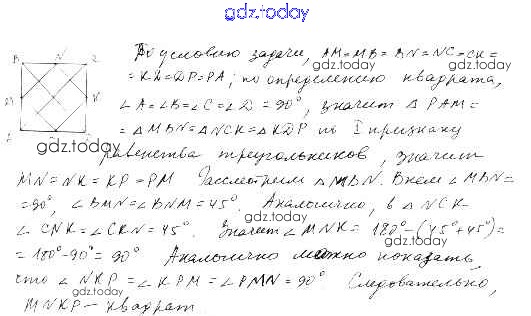 gdz.today
B N C
По условию задачи, AM=MB=BN=NC=CK=
gdz.today gdz.today
=KD=DP=PA; по определению квадрата,
M K
∠A=∠B=∠C=∠D=90°, значит ΔPAM=
A
=ΔMBN=ΔNCK=ΔKDP по I признаку
gdz.today gdz.today
равенства треугольников, значит
MN=NK=KP=PM Рассмотрим ΔMBN. В нем ∠MBN=
gdz.today
=90°, ∠BMN=∠BNM=45°. Аналогично, в ΔNCK-
gdz.today
∠CNK=∠CKN=45°. Значит ∠MNK=180°-(45°+45°)=
=180°-90°=90° Аналогично можно показать,
gdz.today
что ∠NKP=∠KPM=∠PMN=90°. Следовательно,
gdz.today
MNKP - квадрат